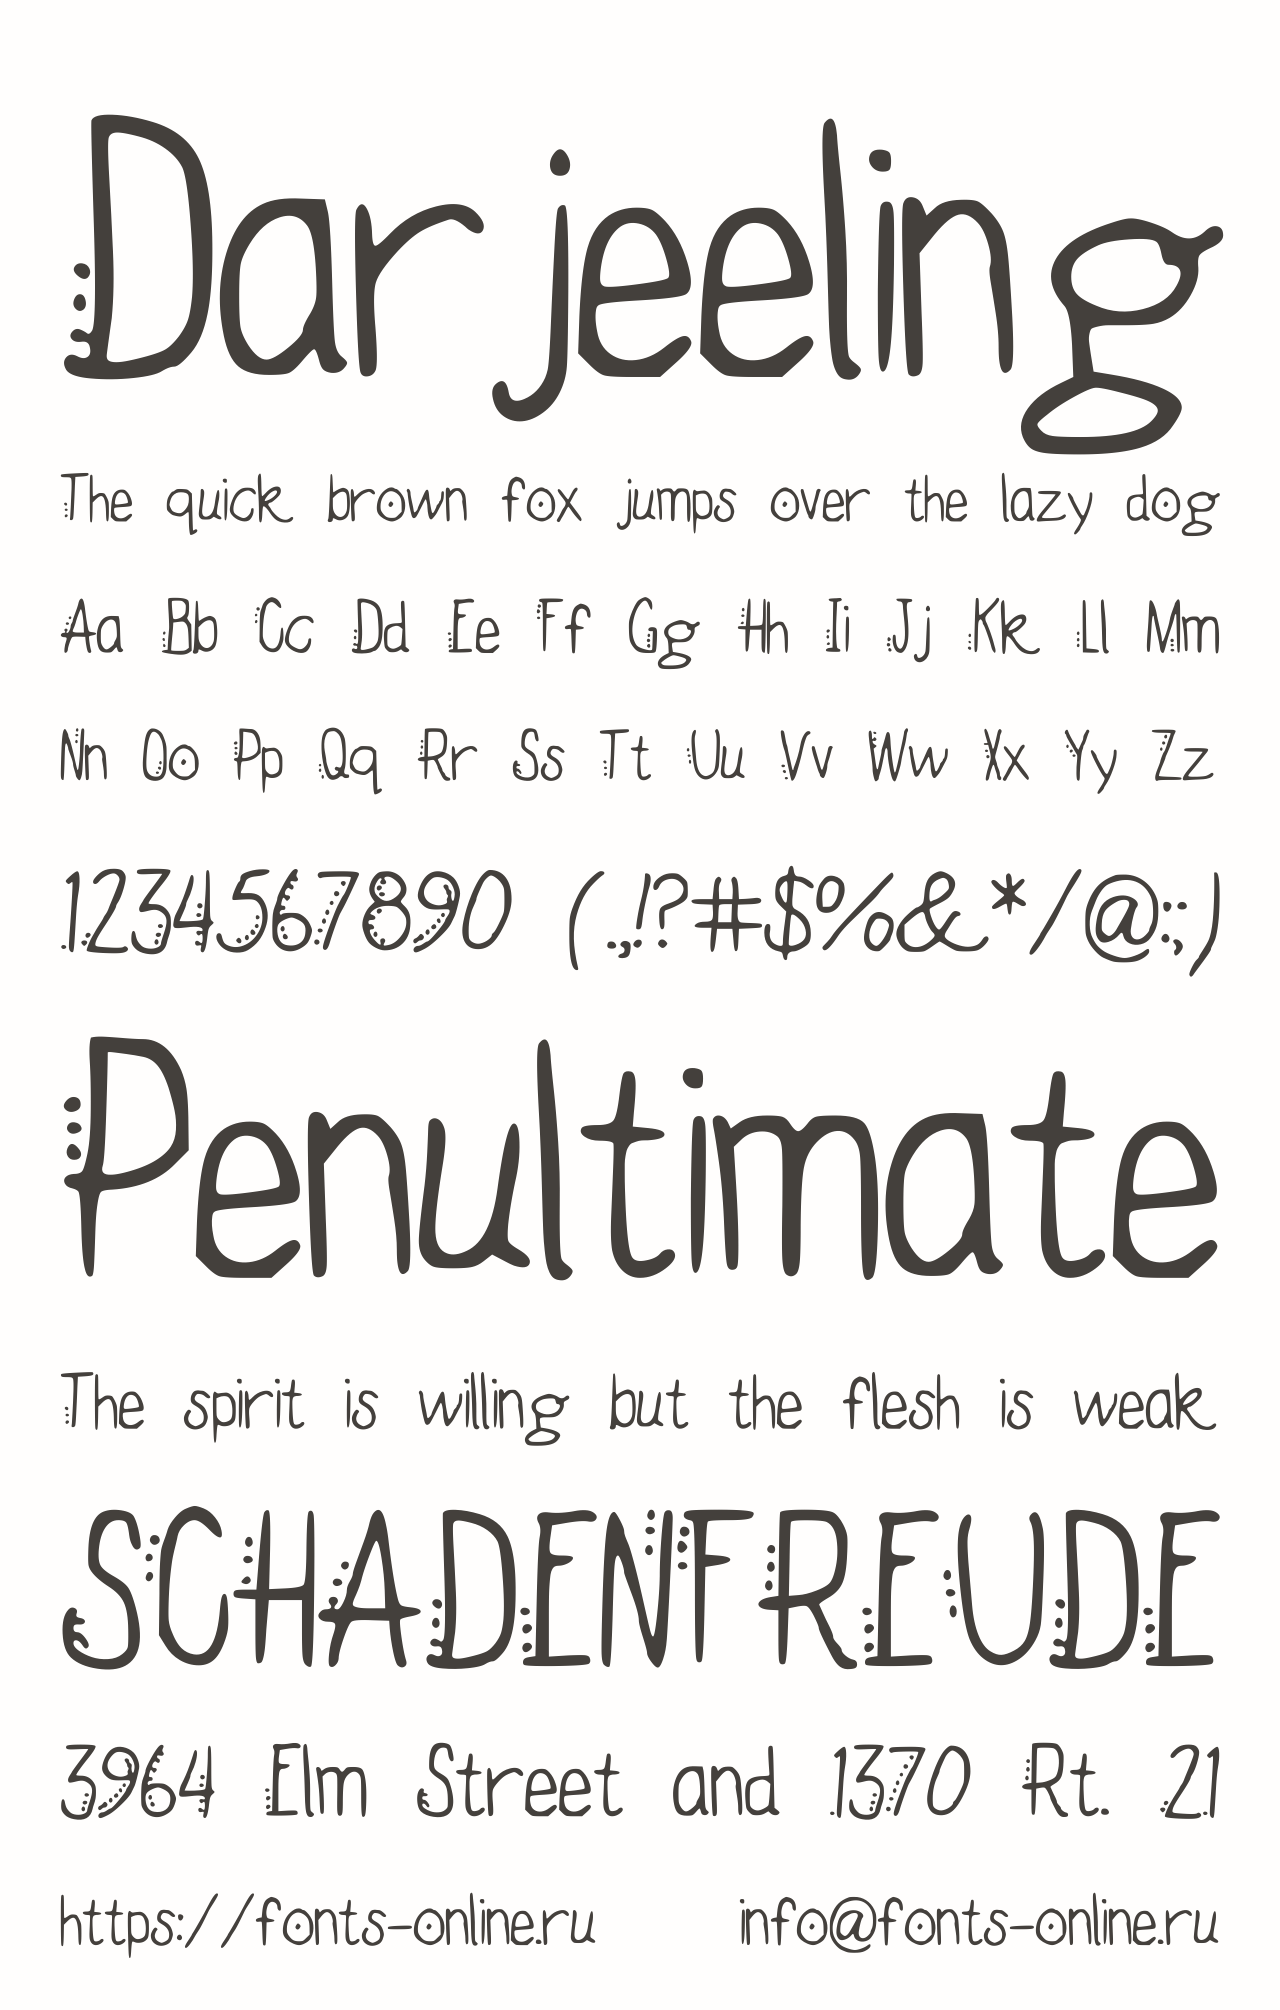 Darjeeling
The quick brown fox jumps over the lazy dog
Aa Bb Cc Dd Ee Ff Gg Hh Ii Jj Kk Ll Mm
Nn Oo Pp Qq Rr Ss Tt Uu Vv Ww Xx Yy Zz
1234567890 (.,!?#$%&*/@:;)
Penultimate
The spirit is willing but the flesh is weak
SCHADENFREUDE
3964 Elm Street and 1370 Rt. 21
https://fonts-online.ru info@fonts-online.ru